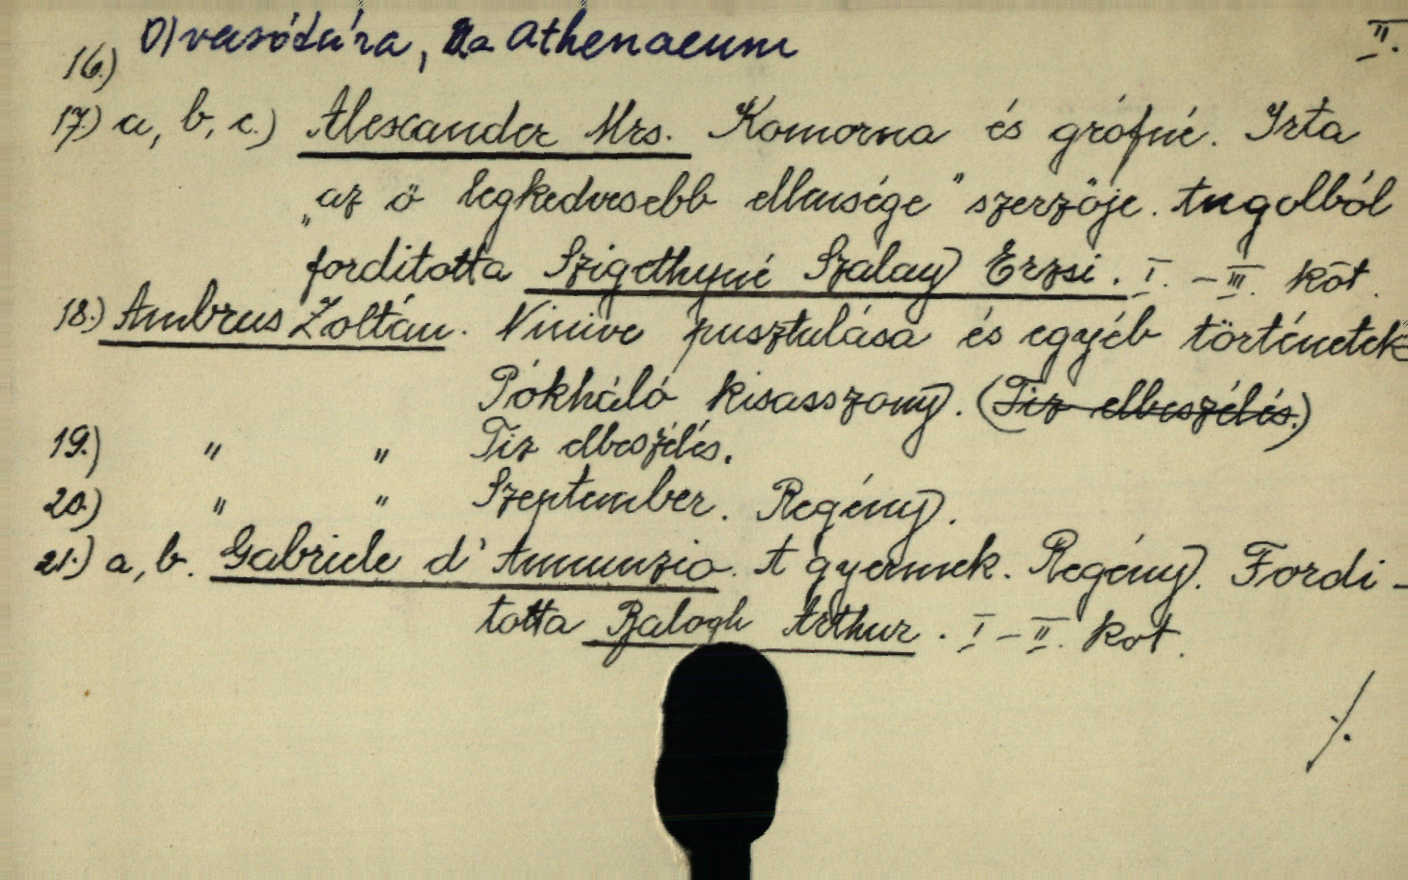 Olvasótára, Az Athenaeum
II.
16.)
17) a, b, c.) Alexander Mrs. Komorna és grófné. Irta
„az ő legkedvesebb ellensége" szerzője. Angolból
forditotta Szigethyné Szalay Erzsi. I. – III. köt.
18.) Ambrus Zoltán. Ninive pusztulása és egyéb történetek
Pókháló kisasszony. (Tiz elbeszélés.)
19.) " " Tiz elbeszélés.
20.) " " Szeptember. Regény.
21.) a, b. Gabriele d' Annunzio. A gyermek. Regény. Fordi-
totta Balogh Arthur. I – II. köt.
./.